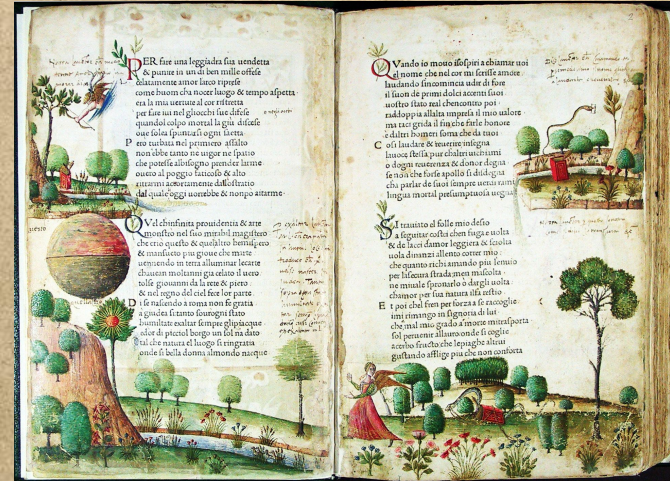 PER fare una leggiadra sua uendetta
& punire in un di ben mille offese
celatamente amor larco riprese
come huom cha nocer luogo & tempo aspetta
era la mia uertute al cor ristretta
per fare iui nel gliocchi sue difese
quandol colpo mortal la giu discese
oue solea spuntarsi ogni saetta
Pero turbata nel primero assalto
non ebbe tanto ne uigor ne spatio
che potesse albisogno prender larme
ouero al poggio faticoso & alto
ritrarmi accortamente dallostratio
dal quale oggi uorrebbe & non po aitarme
QVel chinfinita prouidentia & arte
monstro nel suo mirabil magistero
che crio questo & quelaltro hemispero
& mansueto piu gioue che marte
uenendo in terra alluminar lecarte
chauean moltanni gia celato il uero
tolse giouanni da la rete & piero
& nel regno del ciel fece lor parte
Di se nascendo a roma non fe gratia
a giudea si tanto souragni stato
humiltate exaltar sempre gli piacque
& or di picciol borgo un sol na dato
tal che natura el luogo si ringratia
onde si bella donna almondo nacque
QVando io mouo isospiri a chiamar uoi
el nome che nel cor mi scrisse amore
laudando sincomincia udir di fore
il suon de primi dolci accenti suoi
uostro stato real chencontro poi
raddoppia allalta impresa il mio ualore
ma taci grida il fin che farle honore
e daltri homeri soma che da tuoi
Cosi laudare & reuerire insegna
lauoce stessa pur chaltri uichiami
o dogni reuerenza & donor degna
se non che forse apollo si disdegna
cha parlar de suoi sempre uerdi rami
lingua mortal presumptuosa uegna
SI trauiato el folle mio desio
a seguitar costei chen fuga e uolta
& de lacci damor leggiera & sciolta
uola dinanzi allento correr mio
che quanto richiamando piu lenuio
per lasecura strada men mascolta
ne miuale spronarlo o dargli uolta
chamor per sua natura ilfa restio
Et poi chel fren per forza a se raccoglie
imi rimango in signoria di lui
che mal mio grado a morte mitrasporta
sol per uenir allauro onde si coglie
acerbo fructo che lepiaghe altrui
gustando afflige piu che non conforta